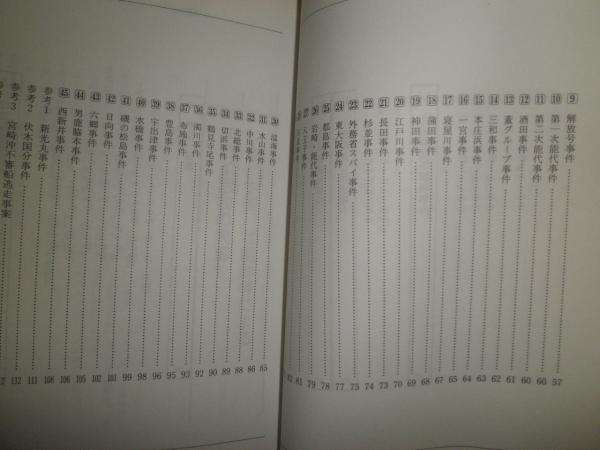 ⑨ 解放号事件……57
⑩ 第一次能代事件……60
⑪ 第二次能代事件……60
⑫ 酒田事件……61
⑬ 董グループ事件……60
⑭ 三和事件……62
⑮ 本庄浜事件……63
⑯ 一宮事件……64
⑰ 寝屋川事件……65
⑱ 蒲田事件……68
⑲ 神田事件……69
⑳ 江戸川事件……70
㉑ 長田事件……73
㉒ 杉並事件……74
㉓ 外務省スパイ事件……75
㉔ 東大阪事件……77
㉕ 都島事件……78
㉖ 岩崎・能代事件……79
㉗ 八王子事件……81
㉚ 温海事件
㉛ 水山事件……85
㉜ 中川事件……86
㉝ 北総事件……88
㉞ 田浜事件……89
㉟ 鶴見寺尾事件……90
㊱ 濁川事件……92
㊲ 布施事件……93
㊳ 豊島事件……95
㊴ 宇出津事件……96
㊵ 水橋事件……98
㊶ 磯の松島事件……99
㊷ 日向事件……101
㊸ 六郷事件……102
㊹ 男鹿脇本事件……105
㊺ 西新井事件……106
参考1 新光丸事件……108
参考2 伏木国分事件……111
参考3 宮崎沖不審船逃走事案……112